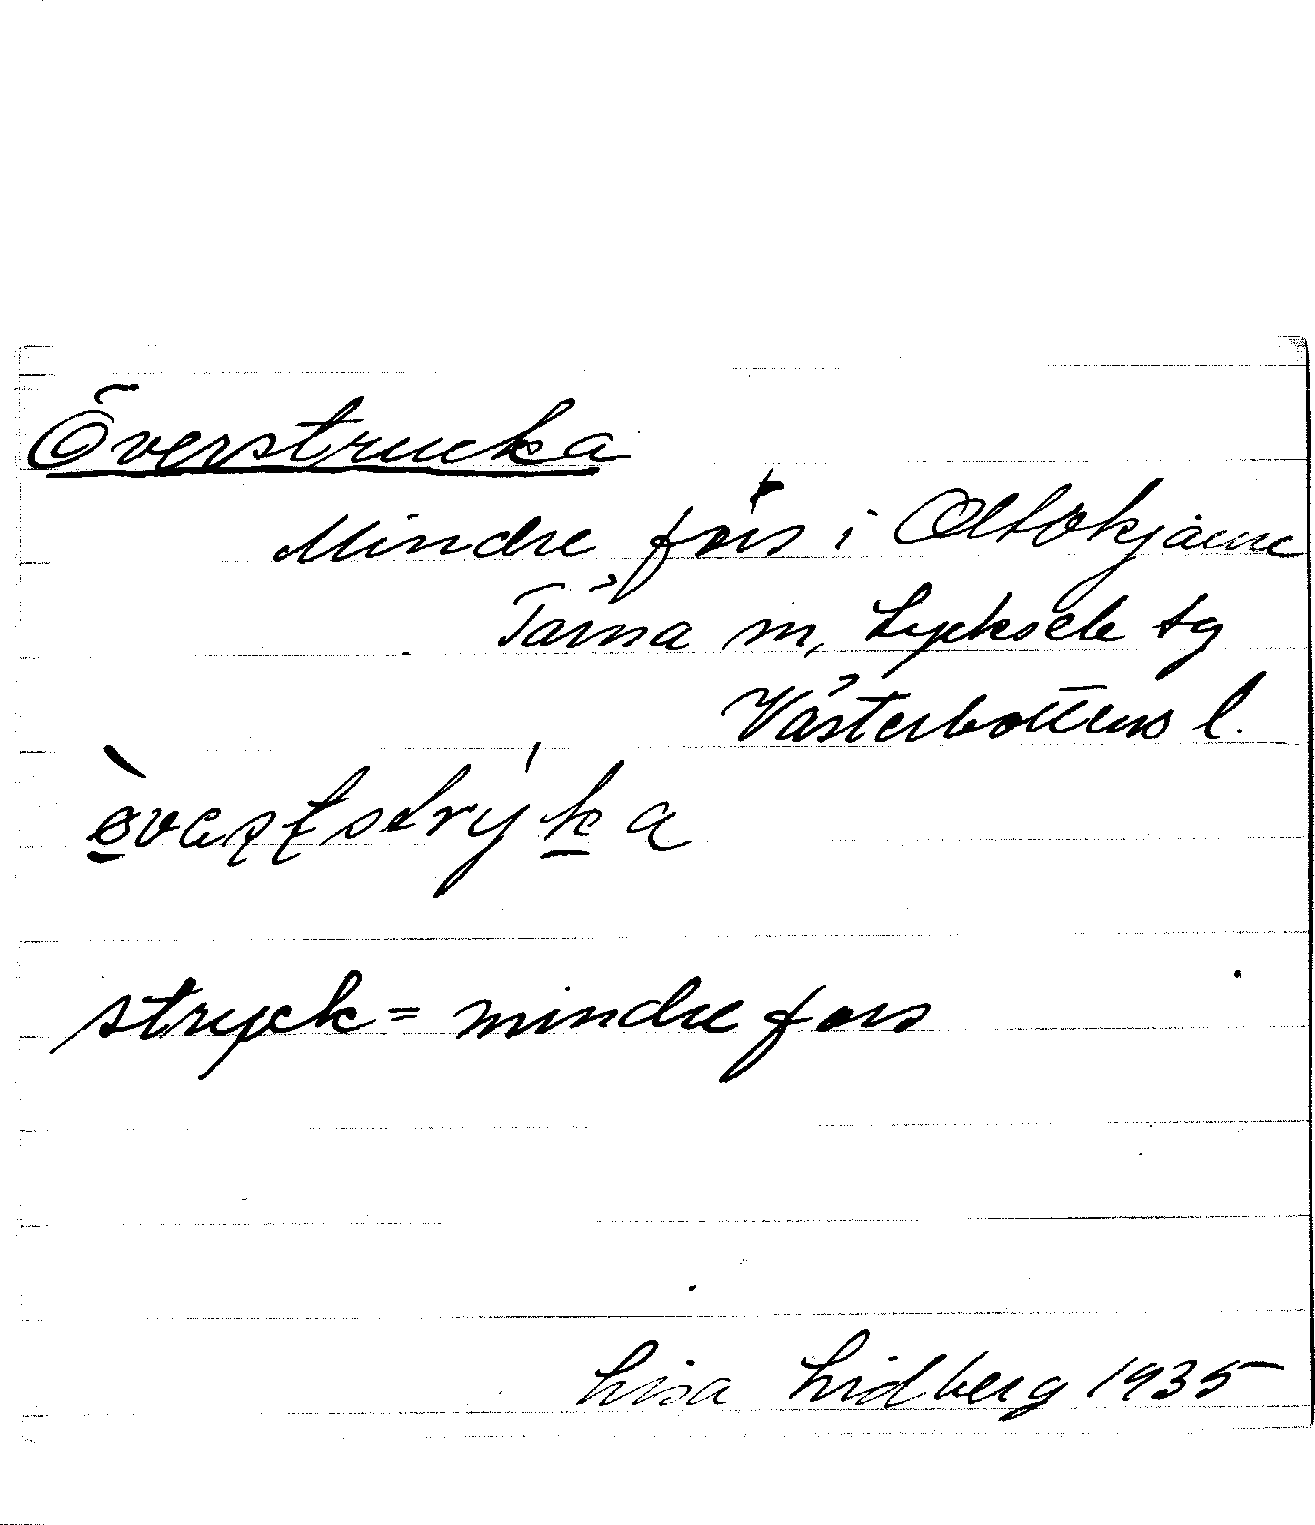 Överstrucka
Mindre fors i
Tärna m, Lycksele tg
Västerbottens l.
stryck = mindre fors
Lisa Lidberg 1935